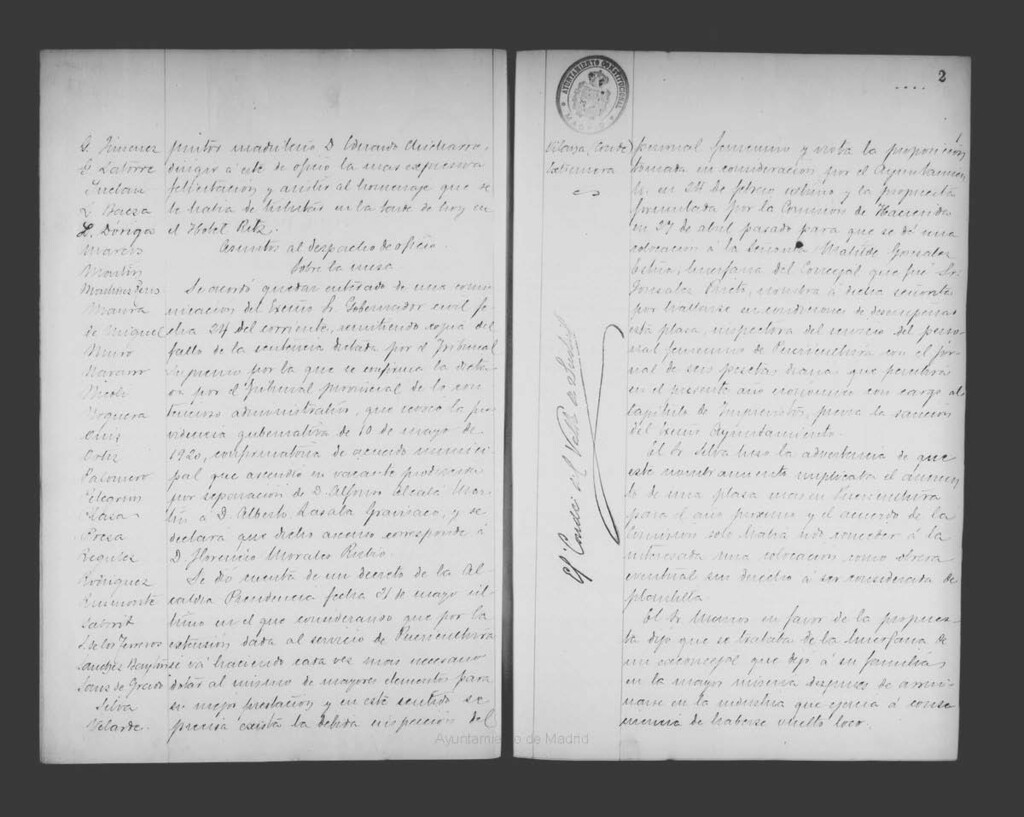 G. Jimenez
G. Latorre
L. Baeza
L. Dóriga
Marcos
Martin
Maura
de Miguel
Muro
Navarro
Nicoli
Noguera
Ortiz
Plaza
Presa
Regulez
Saborit
Silva
Velarde
pintor madrileño D. Eduardo Chicharro,
dirigir á este de oficio la mas expresiva
felicitación y asistir al homenaje que se
le habia de tributar en la tarde de hoy en
el Hotel Ritz.
Asuntos al despacho de oficio.
Sobre la mesa
Se acordó quedar enterado de una comu-
nicación del Excmo Sr Gobernador civil fe-
cha 24 del corriente, remitiendo copia del
fallo de la sentencia dictada por el Tribunal
Supremo por la que se confirma la dicta-
da por el Tribunal provincial de lo con-
tencioso administrativo, que revocó la pro-
videncia gubernativa de 10 de mayo de
1920, confirmatoria de acuerdo munici-
pal que ascendió en vacante producida
por separación de D. Alfonso Alcalá Mar-
tin á D. Alberto Lasala y se
declara que dicho ascenso corresponde á
D. Florencio Morales
Se dió cuenta de un decreto de la Al-
caldia Presidencia fecha 31 de mayo úl-
timo en el que considerando que por la
extensión dada al servicio de Puericultura
se vá haciendo cada vez mas necesario
dotar al mismo de mayores elementos para
su mejor prestación y en este sentido se
precisa exista la debida inspección del
AYUNTAMIENTO CONSTITUCIONAL
MADRID
2
Vilana (Conde)
El Conde del Valle de Suchil
personal femenino y vista la proposición
tomada en consideración por el Ayuntamien-
to en 24 de febrero último y la propuesta
formulada por la Comisión de Hacienda
en 27 de abril pasado para que se dé una
colocación á la Señorita Matilde Gonzalez
huerfana del Concejal que fué Sr.
Gonzalez Prieto, nombra á dicha señorita
por hallarse en condiciones de desempeñar
esta plaza, inspectora del servicio del perso-
nal femenino de Puericultura con el jor-
nal de seis pesetas diarias que percibirá
en el presente año económico con cargo al
capitulo de Imprevistos, previa la sanción
del Excmo Ayuntamiento.
El Sr Silva hizo la advertencia de que
este nombramiento implicaba el aumen-
to de una plaza mas en Puericultura
para el año próximo y el acuerdo de la
Comisión solo habia sido conceder á la
interesada una colocación como obrera
eventual sin derecho á ser considerada de
plantilla
El Sr Marcos en favor de la propues-
ta dijo que se trataba de la huerfana de
un exconcejal que dejó á su familia
en la mayor miseria despues de arrui-
narse en la industria que ejercia á conse-
cuencia de haberse vuelto loco.
Ayuntamiento de Madrid